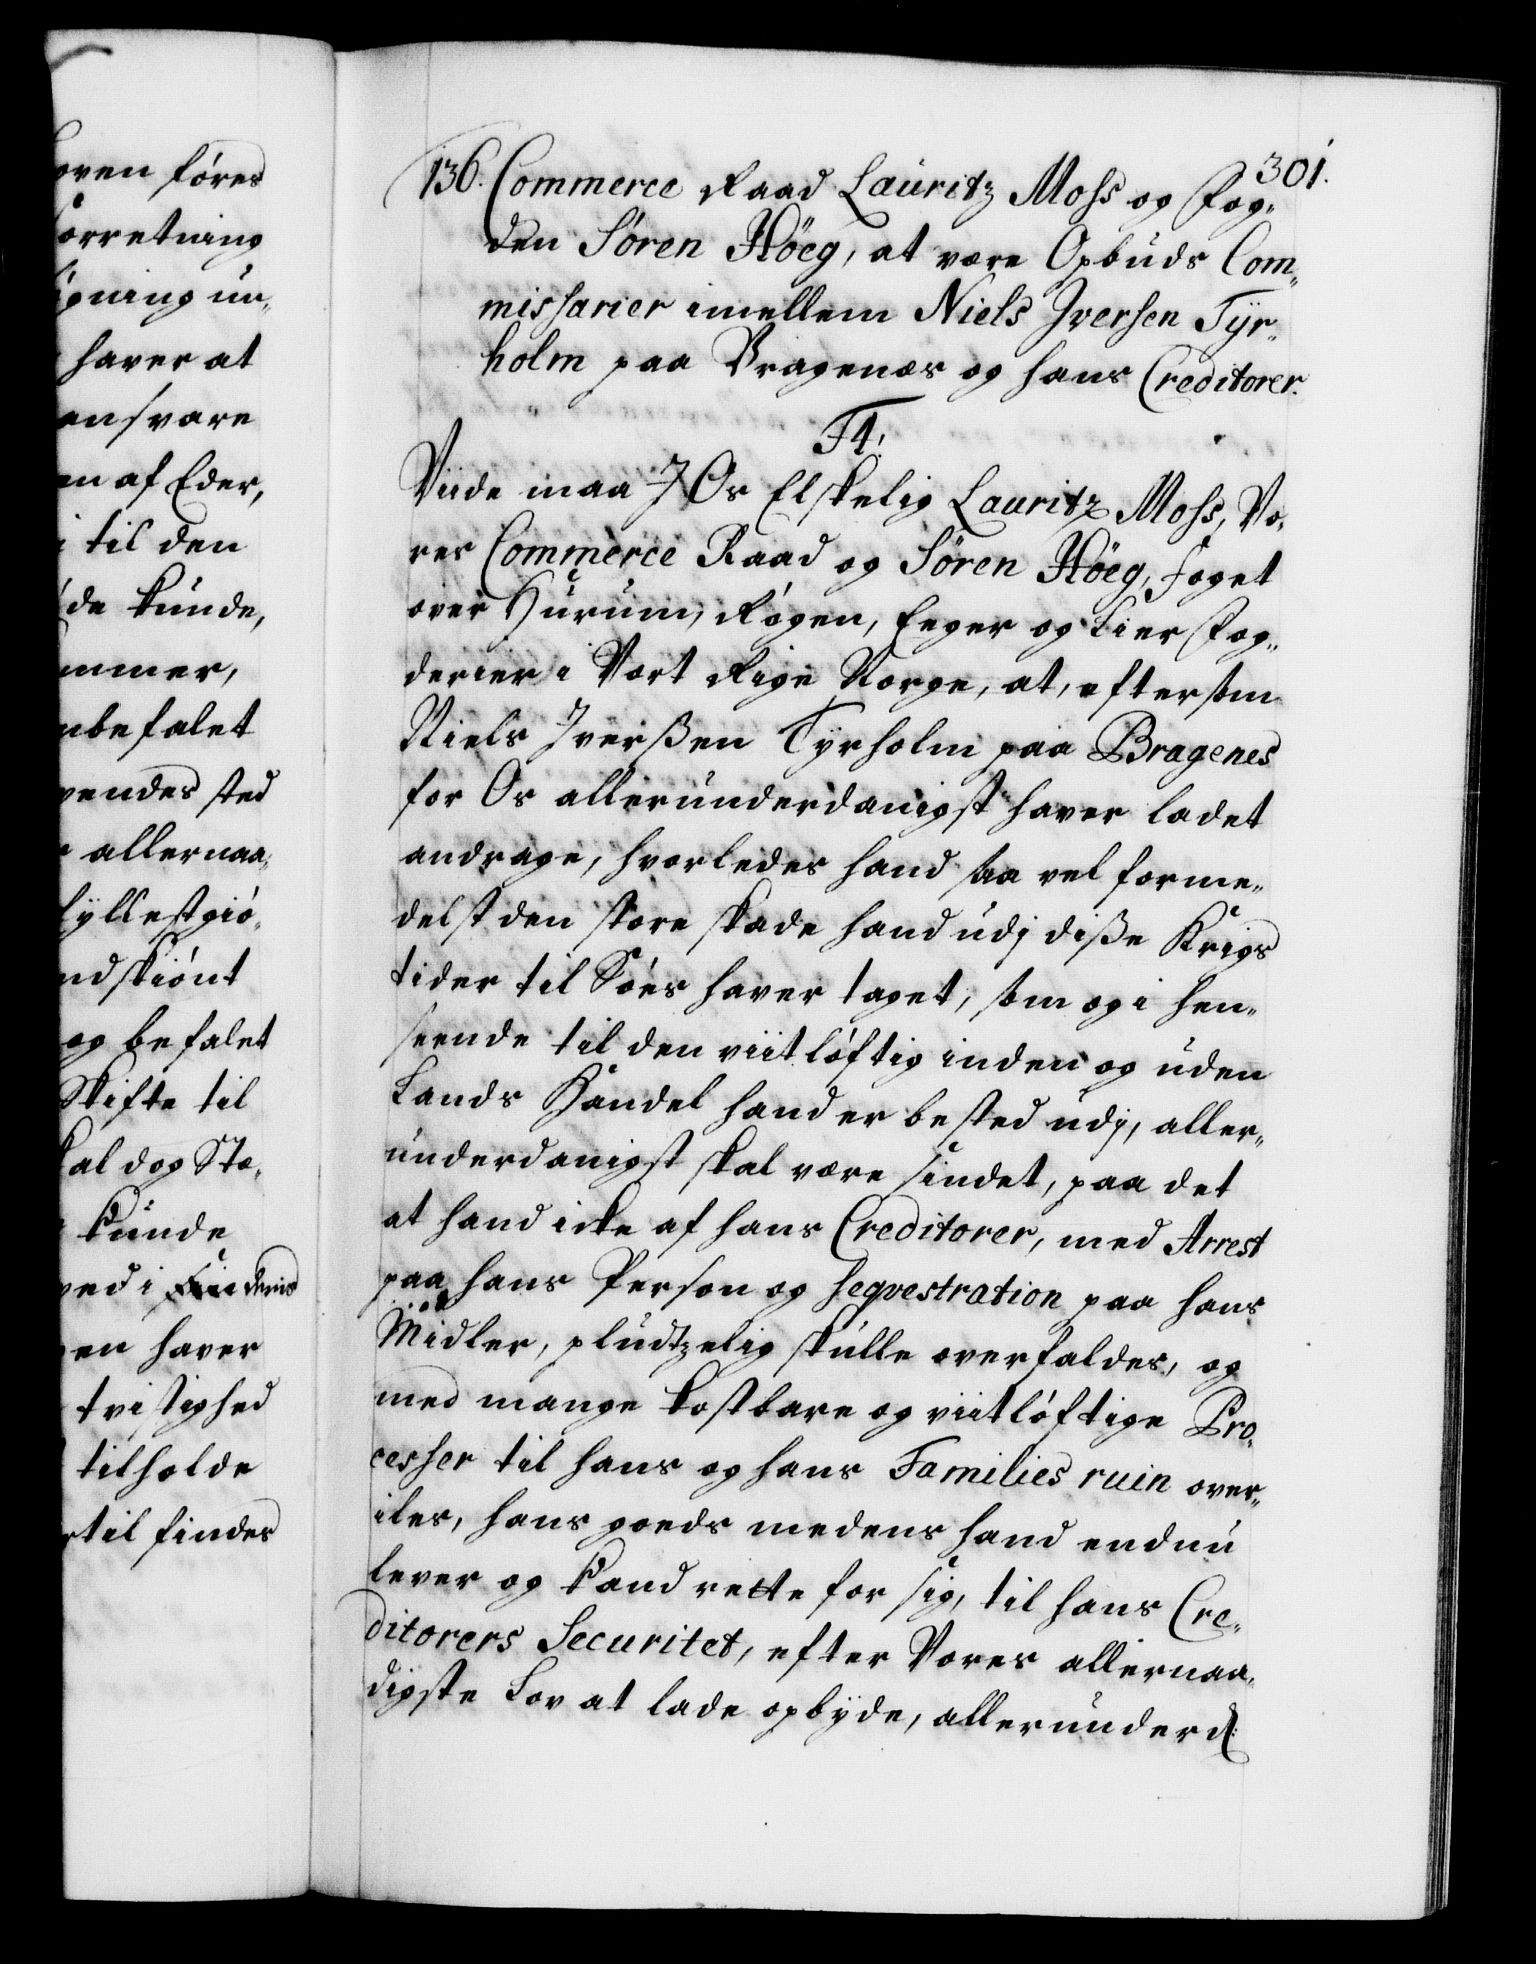 oven føres
orretning
gning un„
haver at
ansvare
en af Eder,
i til den
de kunde,
ommer,
nbefalet
vendes sted
allernaa„
fyllestgiö„
ndskiönt
og befalet
Skifte til
al dog Stæ„
kunde
ved i
en haver
tvistighed
tilholde
rtil findes
301.
136. Commerce Raad Lauritz Moss og Fog„
den Søren Höeg, at være Opbuds Com„
missarier imellem Niels Iversen Tÿr„
holm paa Bragenæs og hans Creditorer.
F4:
Viide maa I Os Elskelig Lauritz Moss, Vo„
res Commerce Raad og Søren Höeg, Foget
over Hurum, Røgen, Eeger og Lier Fog„
derier i Vort Rige Norge, at, eftersom
Niels Iverßen Tÿrholm paa Bragenes
for Os allerunderdanigst haver ladet
andrage, hvorledes hand saa vel forme„
delst den store skade hand udj diße Krigs
tider til Söes haver taget, som og i hen„
seende til den viitløftig inden og uden
Lands Handel hand er bested udj, aller„
underdanigst skal være sindet, paa det
at hand icke af hans Creditorer, med Arrest
paa hans Person og seqvestration paa hans
Midler, pludtzelig skulle overfaldes, og
med mange kostbare og viitløftige Pro„
cesser til hans og hans Families ruin over„
iles, hans goeds medens hand endnu
lever og kand rette for sig, til hans Cre„
ditorers Securitet, efter Vores allernaa„
digste Lov at lade opbÿde, allerunderd: